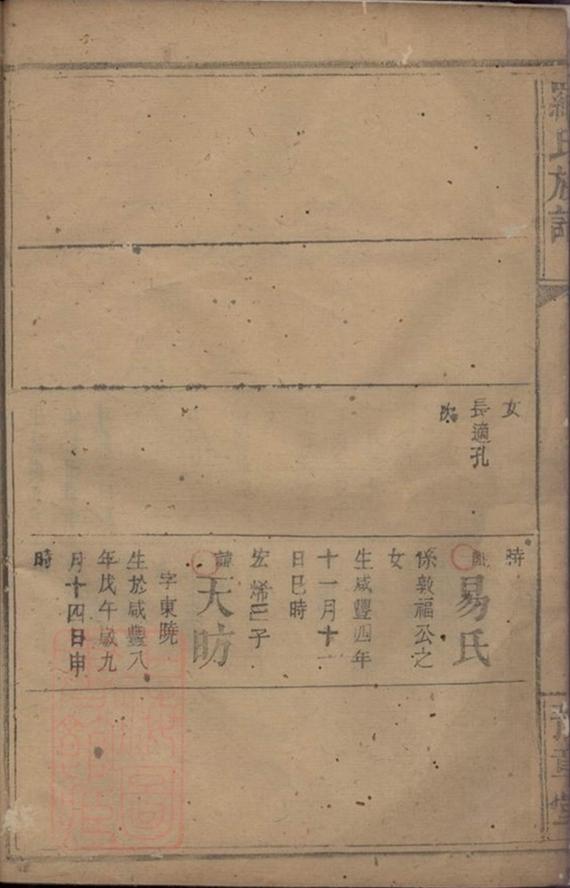 羅氏族譜
女
長適孔
次
時
易氏
係敦福公之
女
生咸豐四年
十一月十一
日巳時
宏烯三子
諱天昉
字東曉
生於咸豐八
年戊午歲九
月十四日申
時
豫章堂